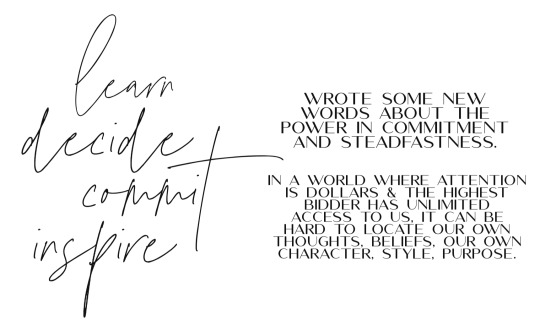 learn
decide
commit
inspire
WROTE SOME NEW
WORDS ABOUT THE
POWER IN COMMITMENT
AND STEADFASTNESS.
IN A WORLD WHERE ATTENTION
IS DOLLARS & THE HIGHEST
BIDDER HAS UNLIMITED
ACCESS TO US, IT CAN BE
HARD TO LOCATE OUR OWN
THOUGHTS, BELIEFS, OUR OWN
CHARACTER, STYLE, PURPOSE.